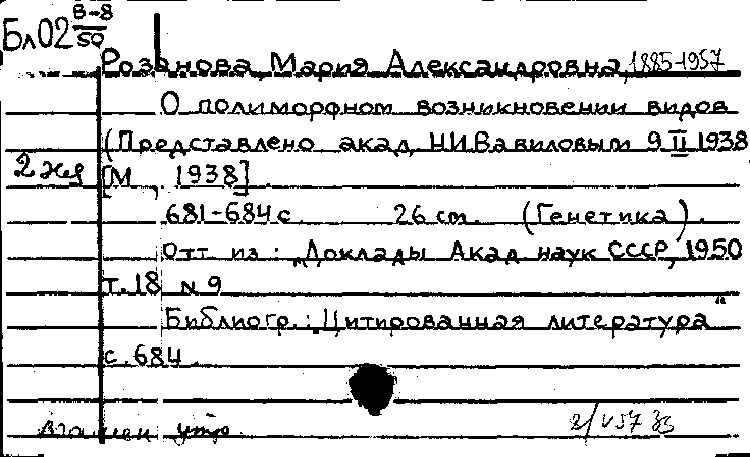 Бл02 В-8/50
Розанова, Мария Александровна, 1885-1957
О полиморфном возникновении видов
(Представлено акад. Н.И.Вавиловым 9 II 1938
2 экз [М., 1938]
681-684 с. 26 см. (Генетика).
Отт. из: „Доклады Акад. наук СССР, 1950
т. 18 № 9
Библиогр.: „Цитированная литература"
с. 684
взамен утр.